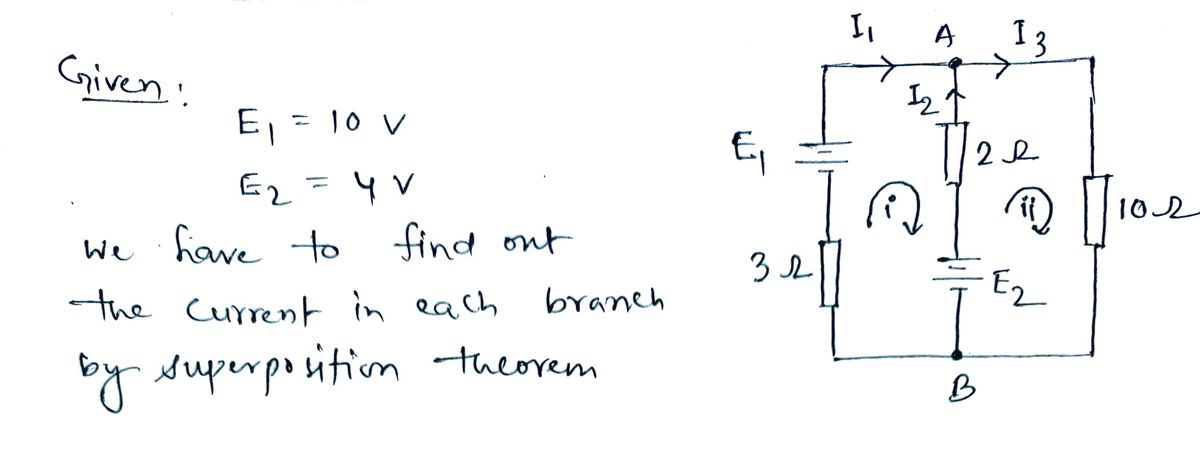 Given:
E₁ = 10 V
E₂ = 4 V
we have to find out
the current in each branch
by superposition theorem
I₁
A
I₃
I₂
E₁
2 Ω
i
ii
10Ω
3 Ω
E₂
B